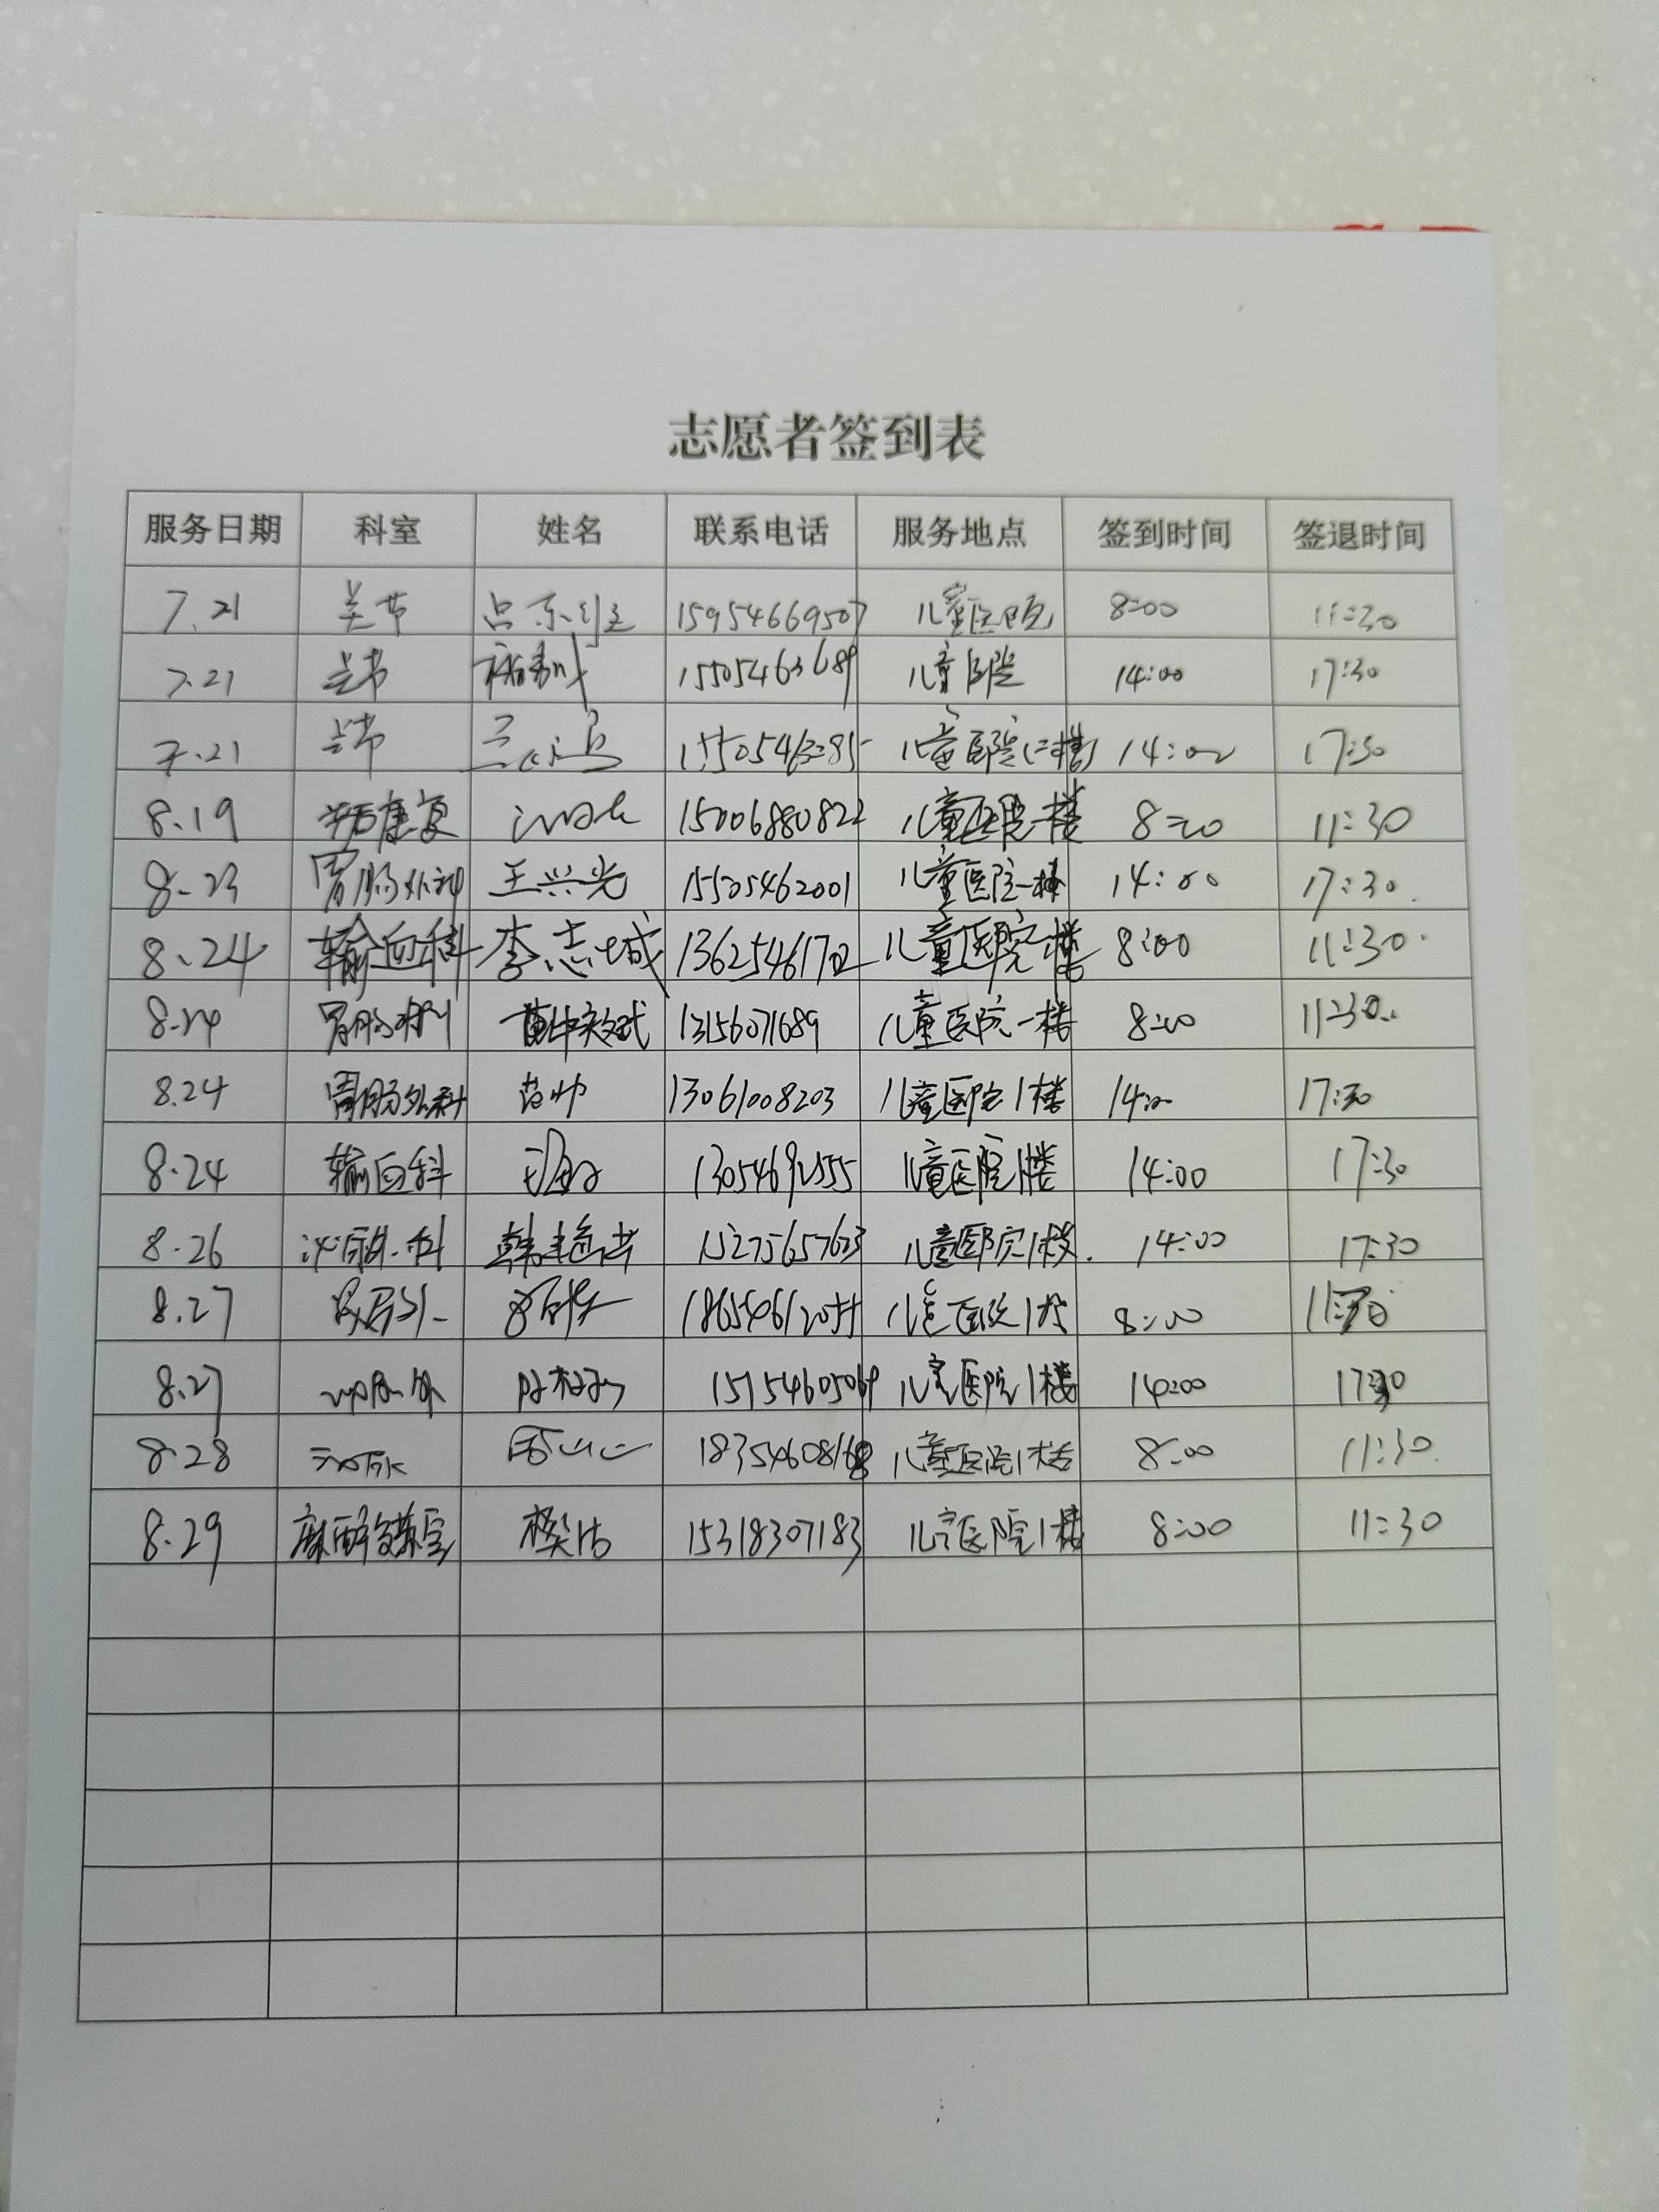 志愿者签到表
服务日期 科室 姓名 联系电话 服务地点 签到时间 签退时间
7.21 关节 15954669507 儿童医院 8:00 11:30
7.21 关节 15505463689 儿童医院 14:00 17:30
7.21 关节 儿童医院(二楼) 14:00 17:30
8.19 康复 15006880822 儿童医院一楼 8:00 11:30
8.23 胃肠外科 王兴光 15505462001 儿童医院一楼 14:00 17:30
8.24 输血科 李志城 13625461702 儿童医院一楼 8:00 11:30
8.24 胃肠外科 13156071689 儿童医院一楼 8:00 11:30
8.24 胃肠外科 范帅 13061008203 儿童医院1楼 14:00 17:30
8.24 输血科 13054692555 儿童医院1楼 14:00 17:30
8.26 泌尿外科 15275657623 儿童医院1楼 14:00 17:30
8.27 儿童医院1楼 8:00 11:30
8.27 15154605069 儿童医院1楼 14:00 17:30
8.28 18354608168 儿童医院1楼 8:00 11:30
8.29 15318307183 儿童医院1楼 8:00 11:30